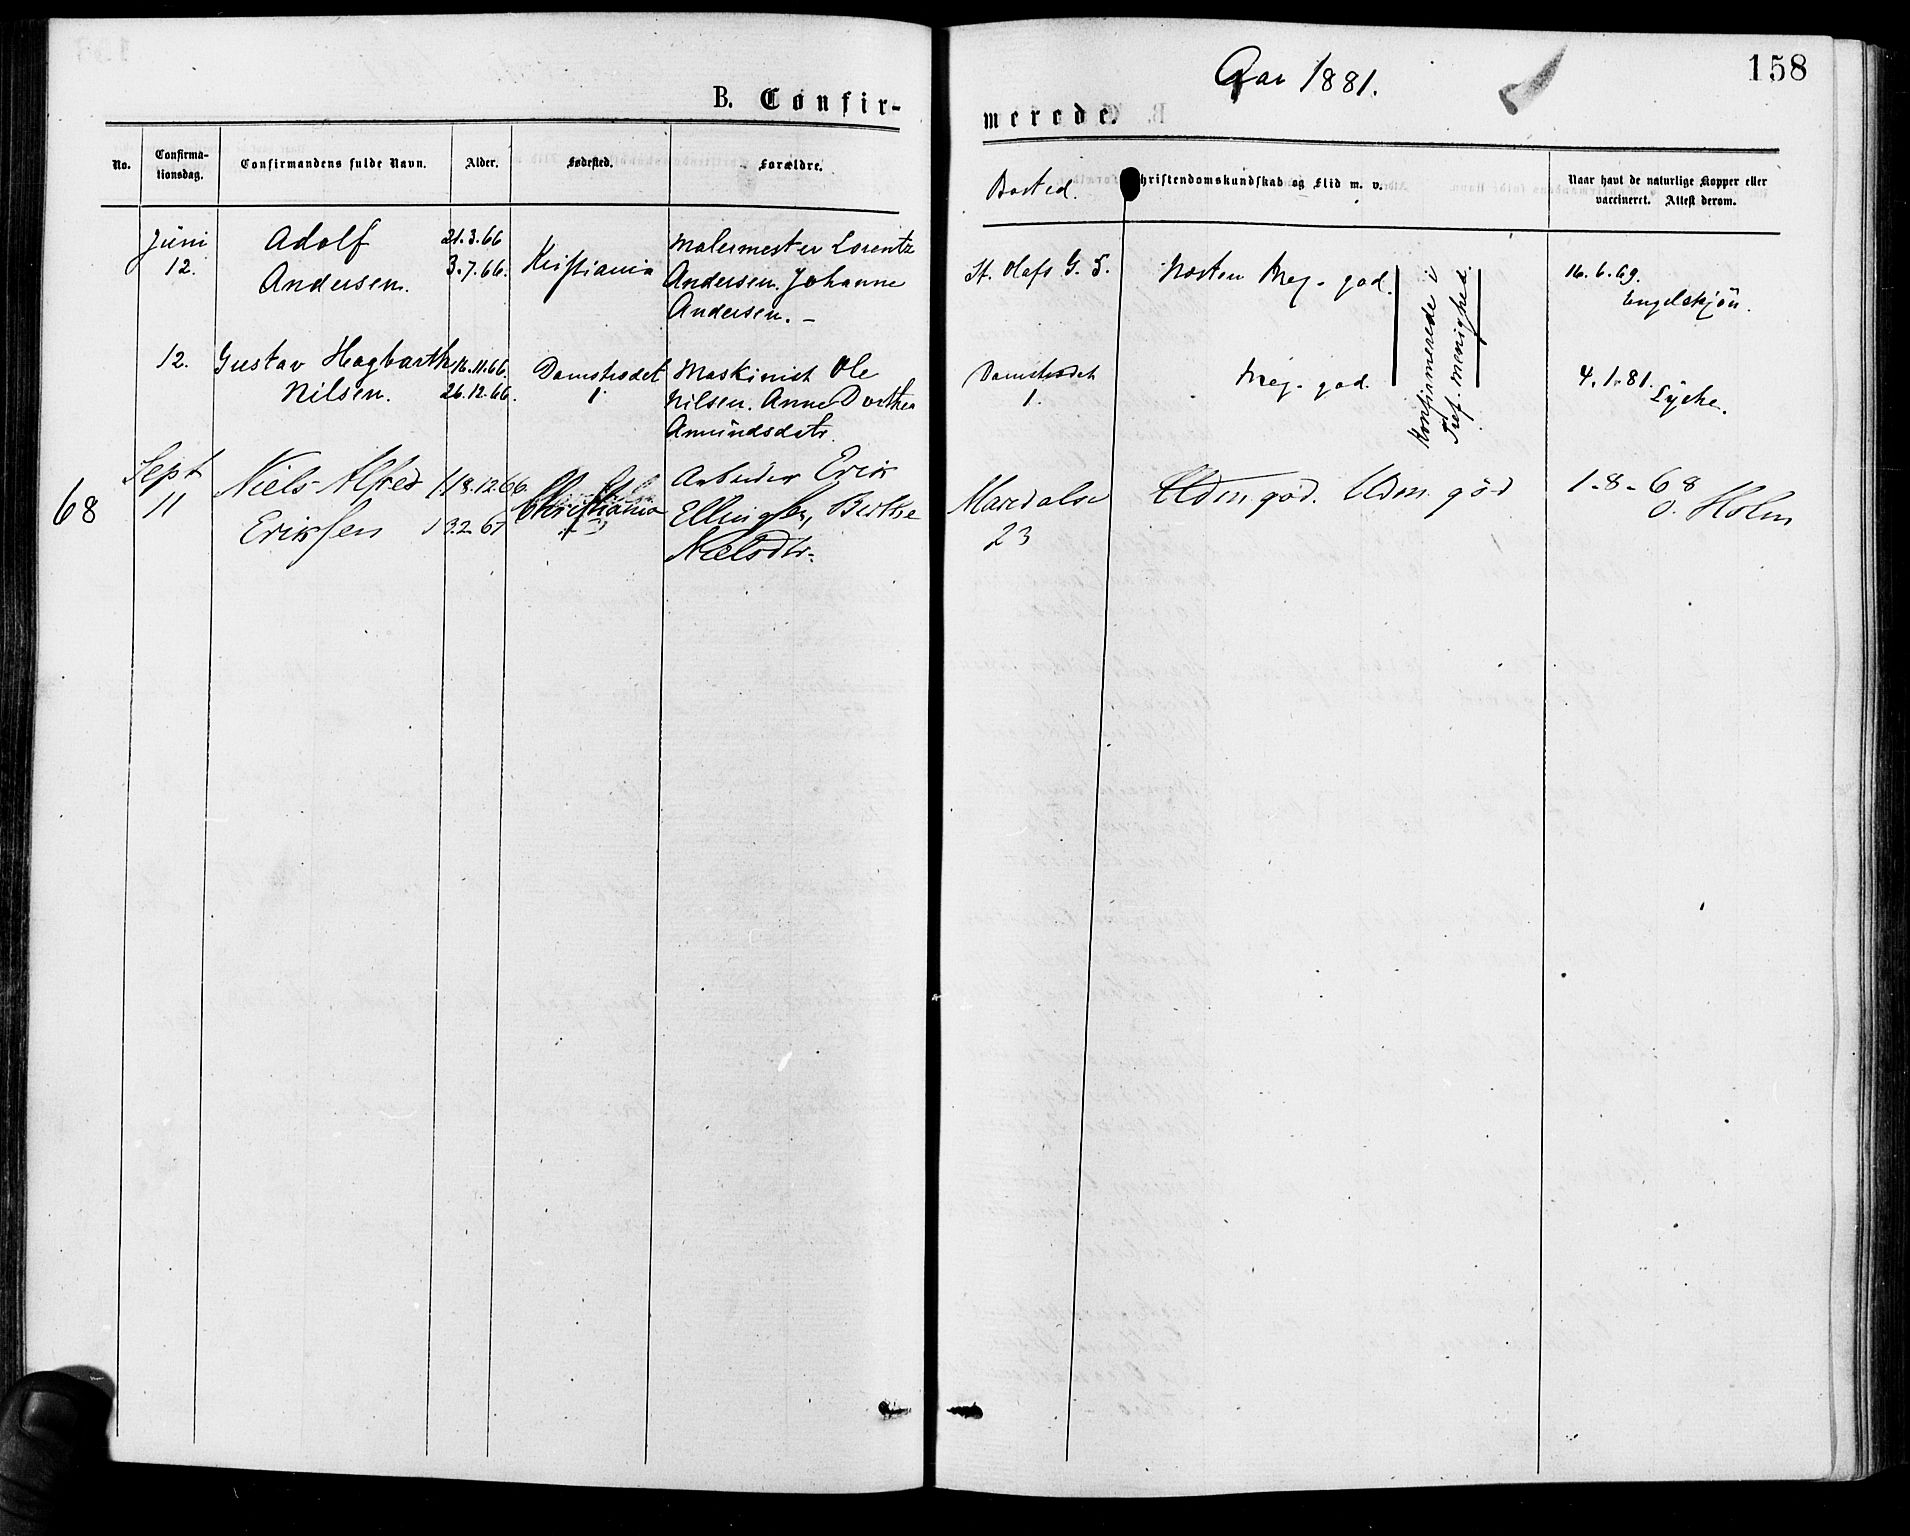 Aar 1881.
158
B. Confir-
merede.
No.
Confirma-
tionsdag.
Confirmandens fulde Navn.
Alder.
Fødested.
Forældre.
Bosted.
hristendomskundskab og Flid m. v.
Naar havt de naturlige Kopper eller
vaccineret. Attest derom.
Juni
12.
Adolf
Andersen.
21.3.66
3.7.66.
Kristiania
Malermester Lorentz
Andersen. Johanne
Andersen. –
St. Olafs G. 5.
Næsten Meg. god.
16.6.69.
Engelskjön.
12.
Gustav Hagbarth
Nilsen.
16.11.66.
26.12.66.
Damstredet
1.
Maskinist Ole
Nilsen. Anne Dorthea
Amundsdatr.
Damstredet
1.
Meg. god.
4.1.81.
Lyche.
Konfirmerede i
Tref. menighed.
68
Sept
11
Niels Alfred
Eriksen
18.12.66.
13.2.67
Christiania
Arbeider Erik
Ellingsen, Berthe
Nielsdtr.
Maridalsv
23
Udm god. Udm. god
1-8-68
O. Holm